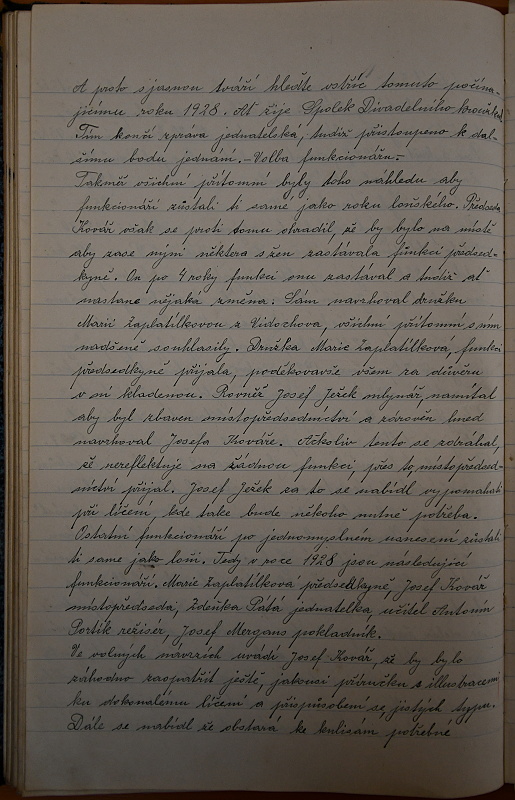 A proto s jasnou tváří hleďte vstříc tomuto počína-
jícímu roku 1928. Ať žije Spolek Divadelního kroužku.
Tím končí zpráva jednatelská, tudíž přistoupeno k dal-
šímu bodu jednání. – Volba funkcionářů. –
Takměř všichni přítomní byly toho náhledu aby
funkcionáři zůstali ti samé jako roku loňského. Předseda
Kovář však se proti tomu ohradil, že by bylo na místě
aby zase nyní některa s žen zastávala funkci předsed-
kyně. On po 4 roky funkci onu zastával a tudíž ať
nastane nějaka změna. Sám navrhoval družku
Marii Zaplatílkovou z Vidochova, všichni přítomní s ním
nadšeně souhlasily. Družka Marie Zaplatílková, funkci
předsedkyně přijala, poděkovavše všem za důvěru
v ni kladenou. Rovněž Josef Ježek mlynář namítal
aby byl zbaven místopředsednictví a zároveň hned
navrhoval Josefa Kováře. Ačkoliv tento se zdráhal,
že nereflektuje na žádnou funkci, přes to, místopředsed-
nictví přijal. Josef Ježek za to se nabídl vypomahati
při líčení, kde take bude někoho nutně potřeba.
Ostatní funkcionáři po jednomyslnem usnesem zůstali
ti same jako loni. Tedy v roce 1928 jsou následující
funkcionáři. Marie Zaplatílková předsedkyně, Josef Kovář
místopředseda, Zdeňka Pátá jednatelka učitel Antonín
Portik režisér, Josef Mergans pokladník.
Ve volných návrzích uvádí Josef Kovář že by bylo
záhodno zaopatřit ještě, jakousi příručku s illustracemi
ku dokonalému líčení a přispůsobení se, jistých typů.
Dále se nabídl že obstará ke kulisám potřebné